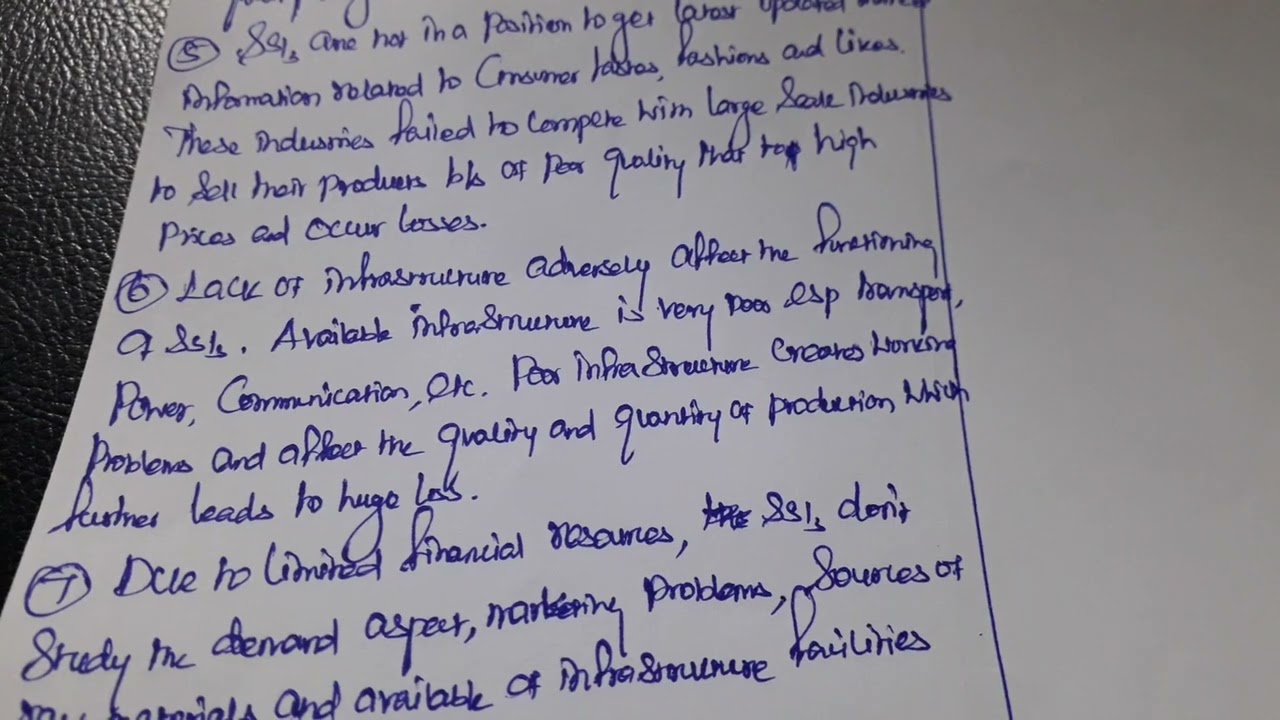 ⑤ SSIs are not in a position to get latest updated
Information related to Consumer tastes, fashions and likes.
These industries failed to compete with large Scale Industries
to Sell their products b/s of Poor quality that too high
Prices and Occur losses.
⑥ Lack of infrastructure adversely affect the functioning
of SSIs. Available infrastructure is very Poor esp transport,
Power, Communication, etc. Poor infrastructure Creates Working
Problems and affect the quality and quantity of production which
further leads to huge loss.
⑦ Due to limited financial resources, SSIs don't
Study the demand aspect, marketing Problems, Sources of
materials and available of infrastructure facilities